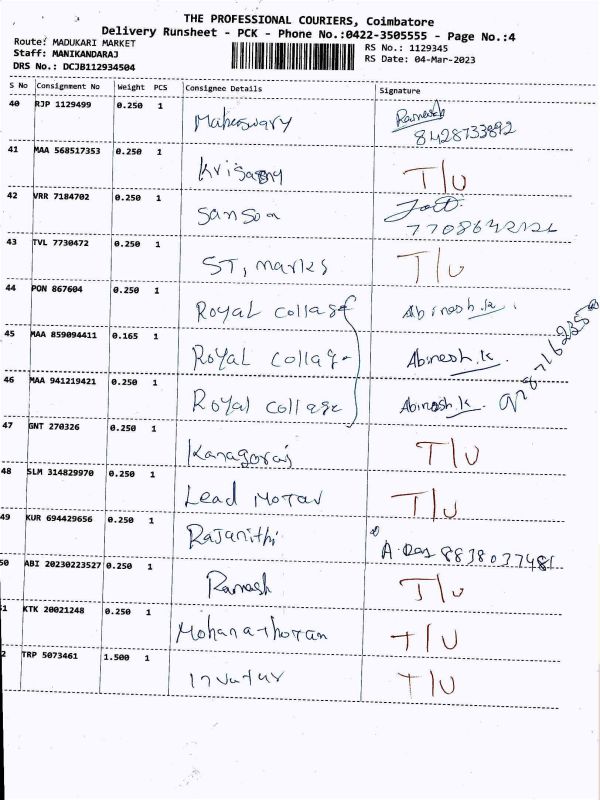 THE PROFESSIONAL COURIERS, Coimbatore
Delivery Runsheet - PCK - Phone No.:0422-3505555 - Page No.:4
Route: MADUKARI MARKET RS No.: 1129345
Staff: MANIKANDARAJ RS Date: 04-Mar-2023
DRS No.: DCJB112934504
S No Consignment No Weight PCS Consignee Details Signature
40 RJP 1129499 0.250 1 Maheswary Ramesh
8428733892
41 MAA 568517353 0.250 1 T/U
42 VRR 7184702 0.250 1 Sanson
43 TVL 7730472 0.250 1 ST, marks T/U
44 PON 867604 0.250 1 Royal collage Abinesh.k
45 MAA 859094411 0.165 1 Royal collage Abinesh.k
46 MAA 941219421 0.250 1 Royal collage Abinesh.k
47 GNT 270326 0.250 1 Kanagoraj T/U
48 SLM 314829970 0.250 1 Lead Motar T/U
49 KUR 694429656 0.250 1 Rajanithi A. Das 8838037481
50 ABI 20230223527 0.250 1 Ramesh T/U
51 KTK 20021248 0.250 1 Mohanathoran T/U
2 TRP 5073461 1.500 1 T/U